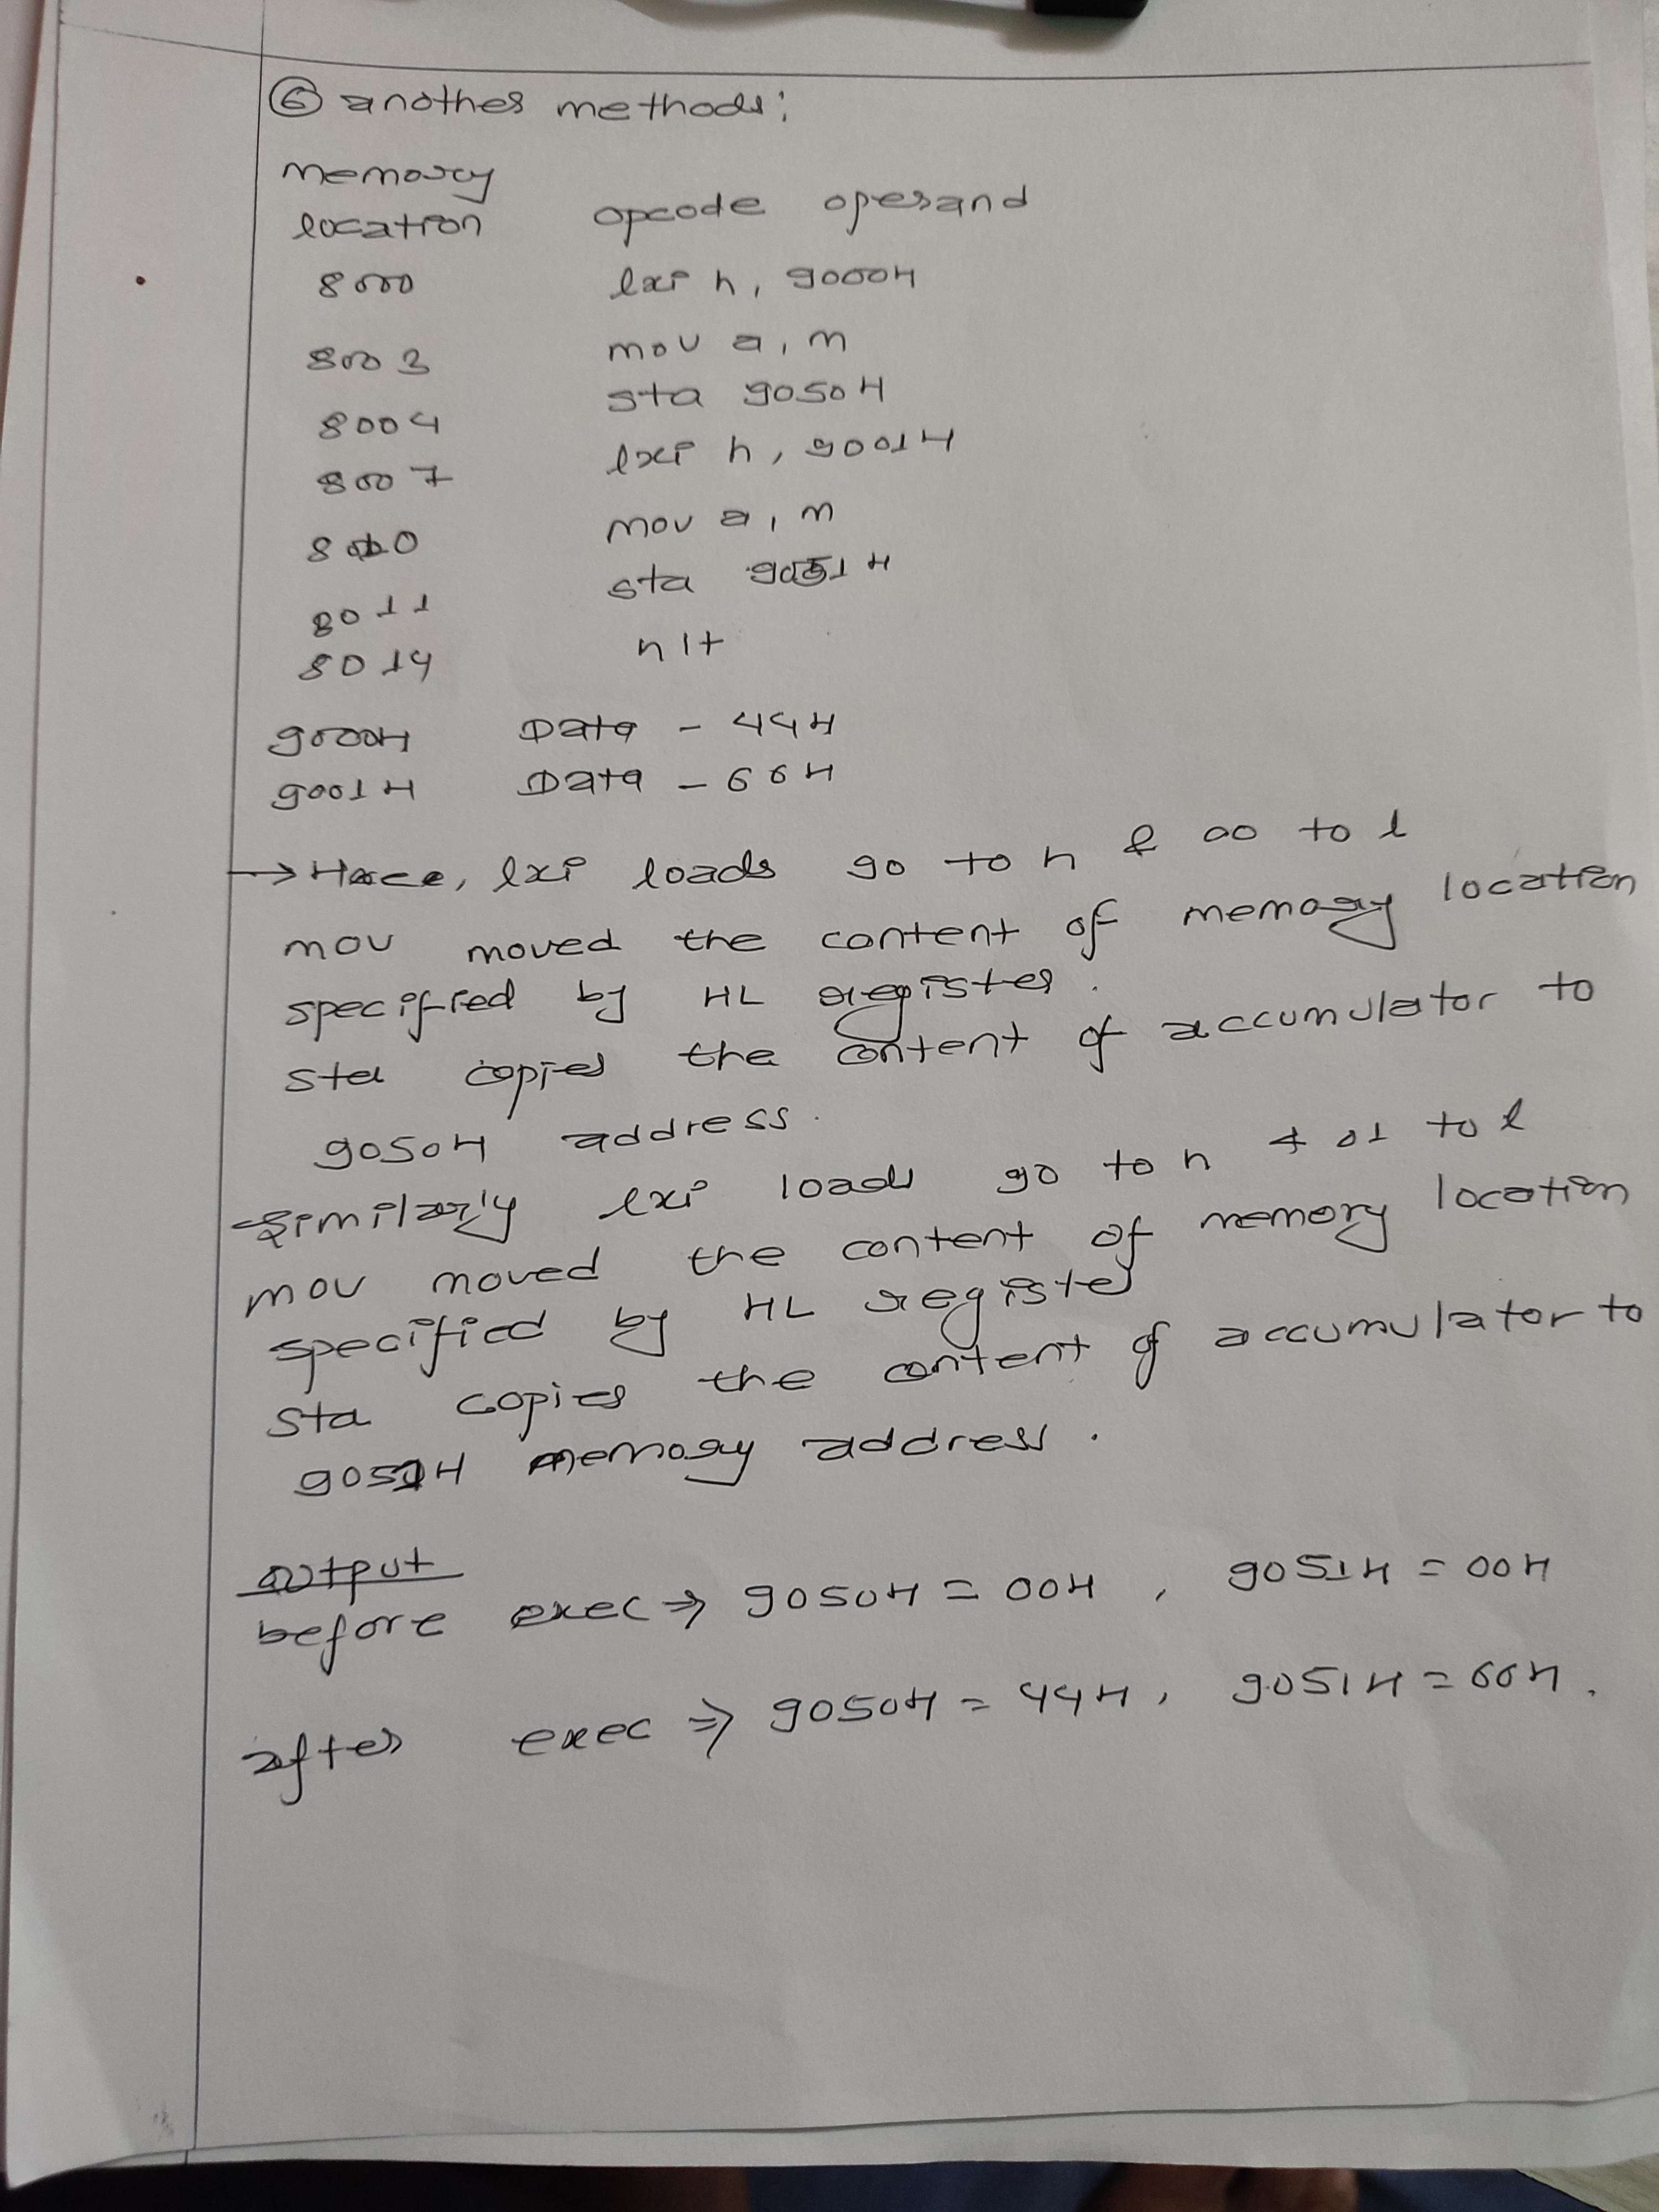 ⑥ another methods:
memory
location opcode operand
8000 lxi h, 9000H
8003 mov a, m
8004 sta 9050H
8007 lxi h, 9001H
8010 mov a, m
8011 sta 9051H
8014 hlt
9000H Data - 44H
9001H Data - 66H
→ Here, lxi loads 90 to h & 00 to l
mov moved the content of memory location
specified by HL register.
sta copies the content of accumulator to
9050H address.
Similarly lxi loads 90 to h & 01 to l
mov moved the content of memory location
specified by HL register
sta copies the content of accumulator to
9051H memory address.
output
before exec ⇒ 9050H = 00H, 9051H = 00H
after exec ⇒ 9050H = 44H, 9051H = 66H.